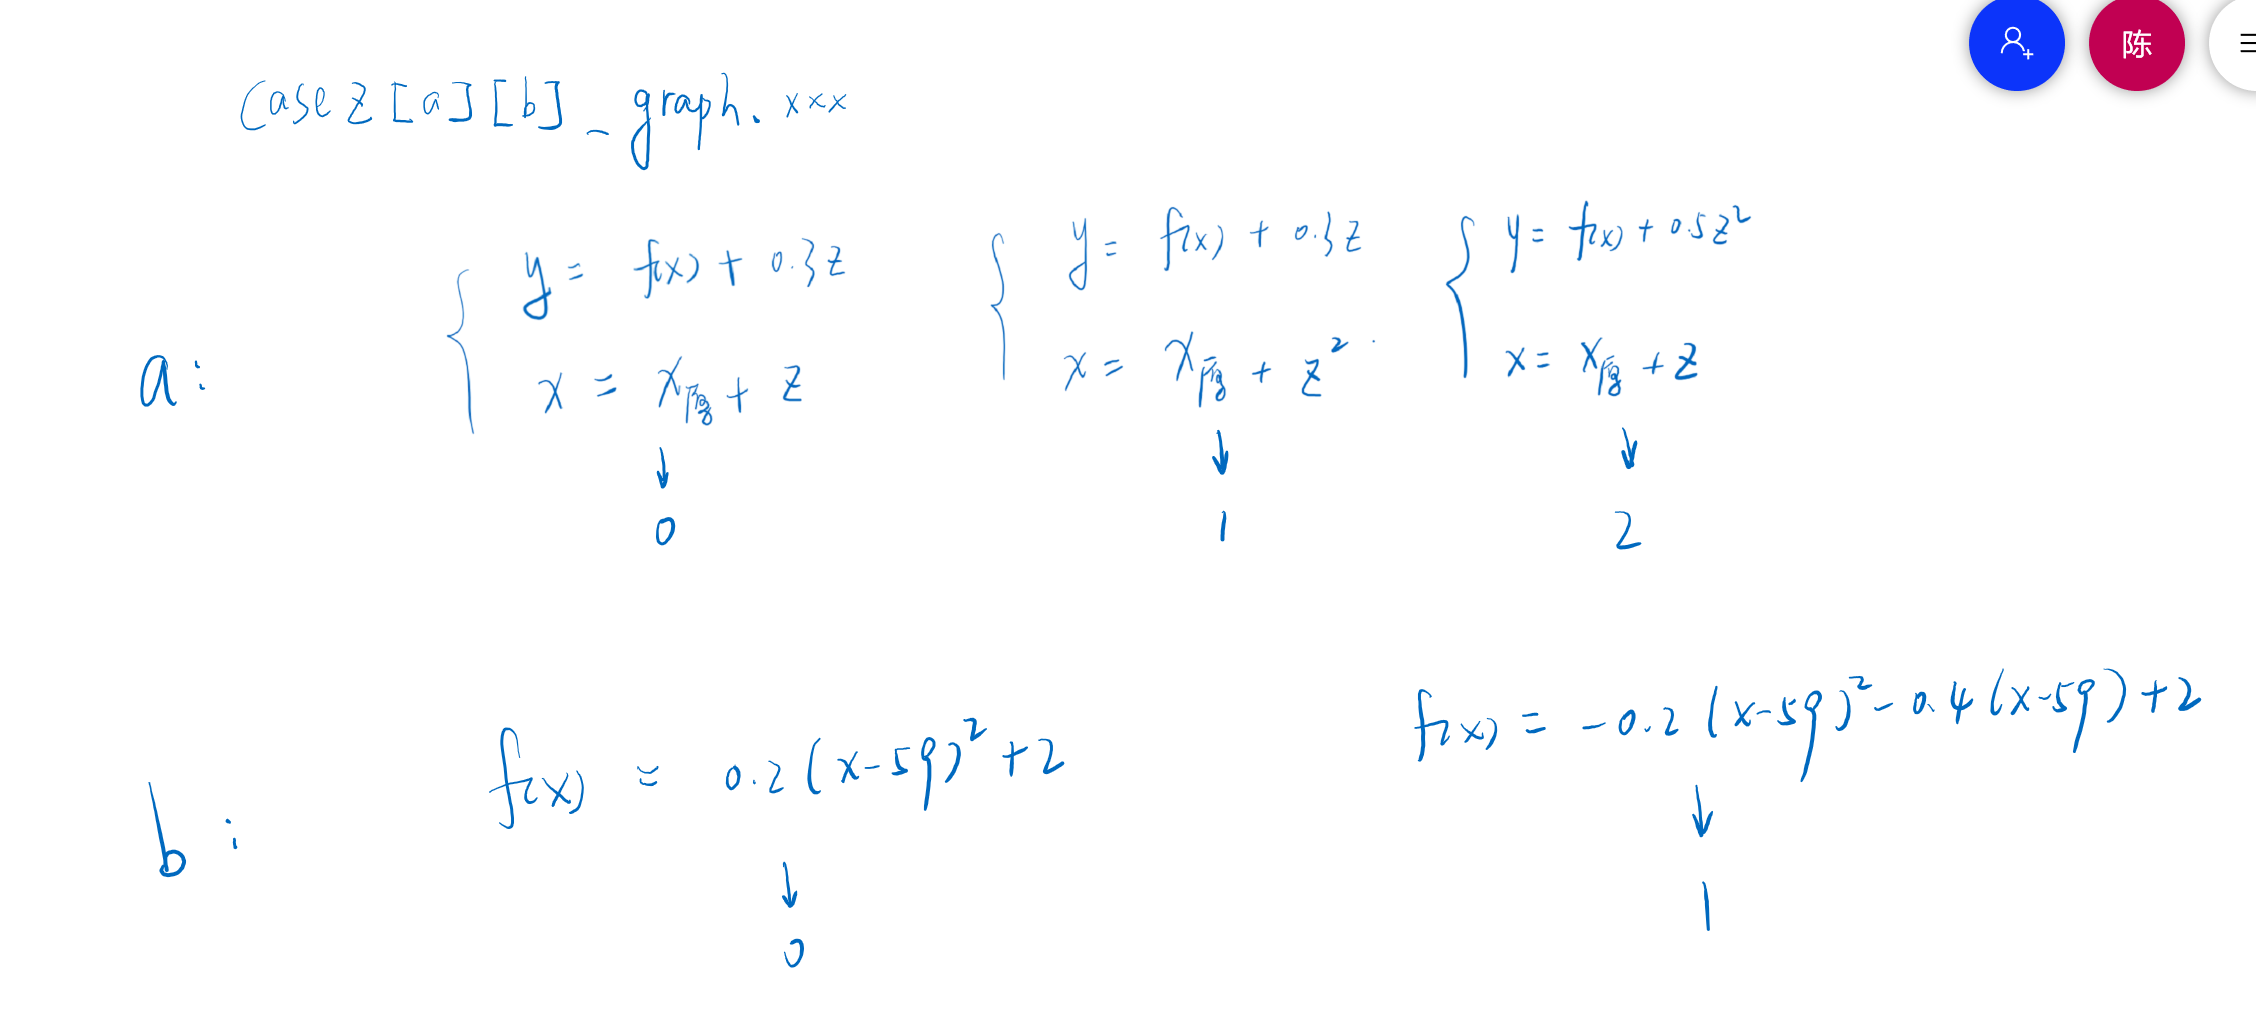 陈
Case z [a][b]_graph.xxx
a:
y = f(x) + 0.3z
x = x原 + z
↓
0
y = f(x) + 0.3z
x = x原 + z²
↓
1
y = f(x) + 0.5z²
x = x原 + z
↓
2
b:
f(x) = 0.2(x-59)²+2
↓
0
f(x) = -0.2(x-59)²-0.4(x-59)+2
↓
1